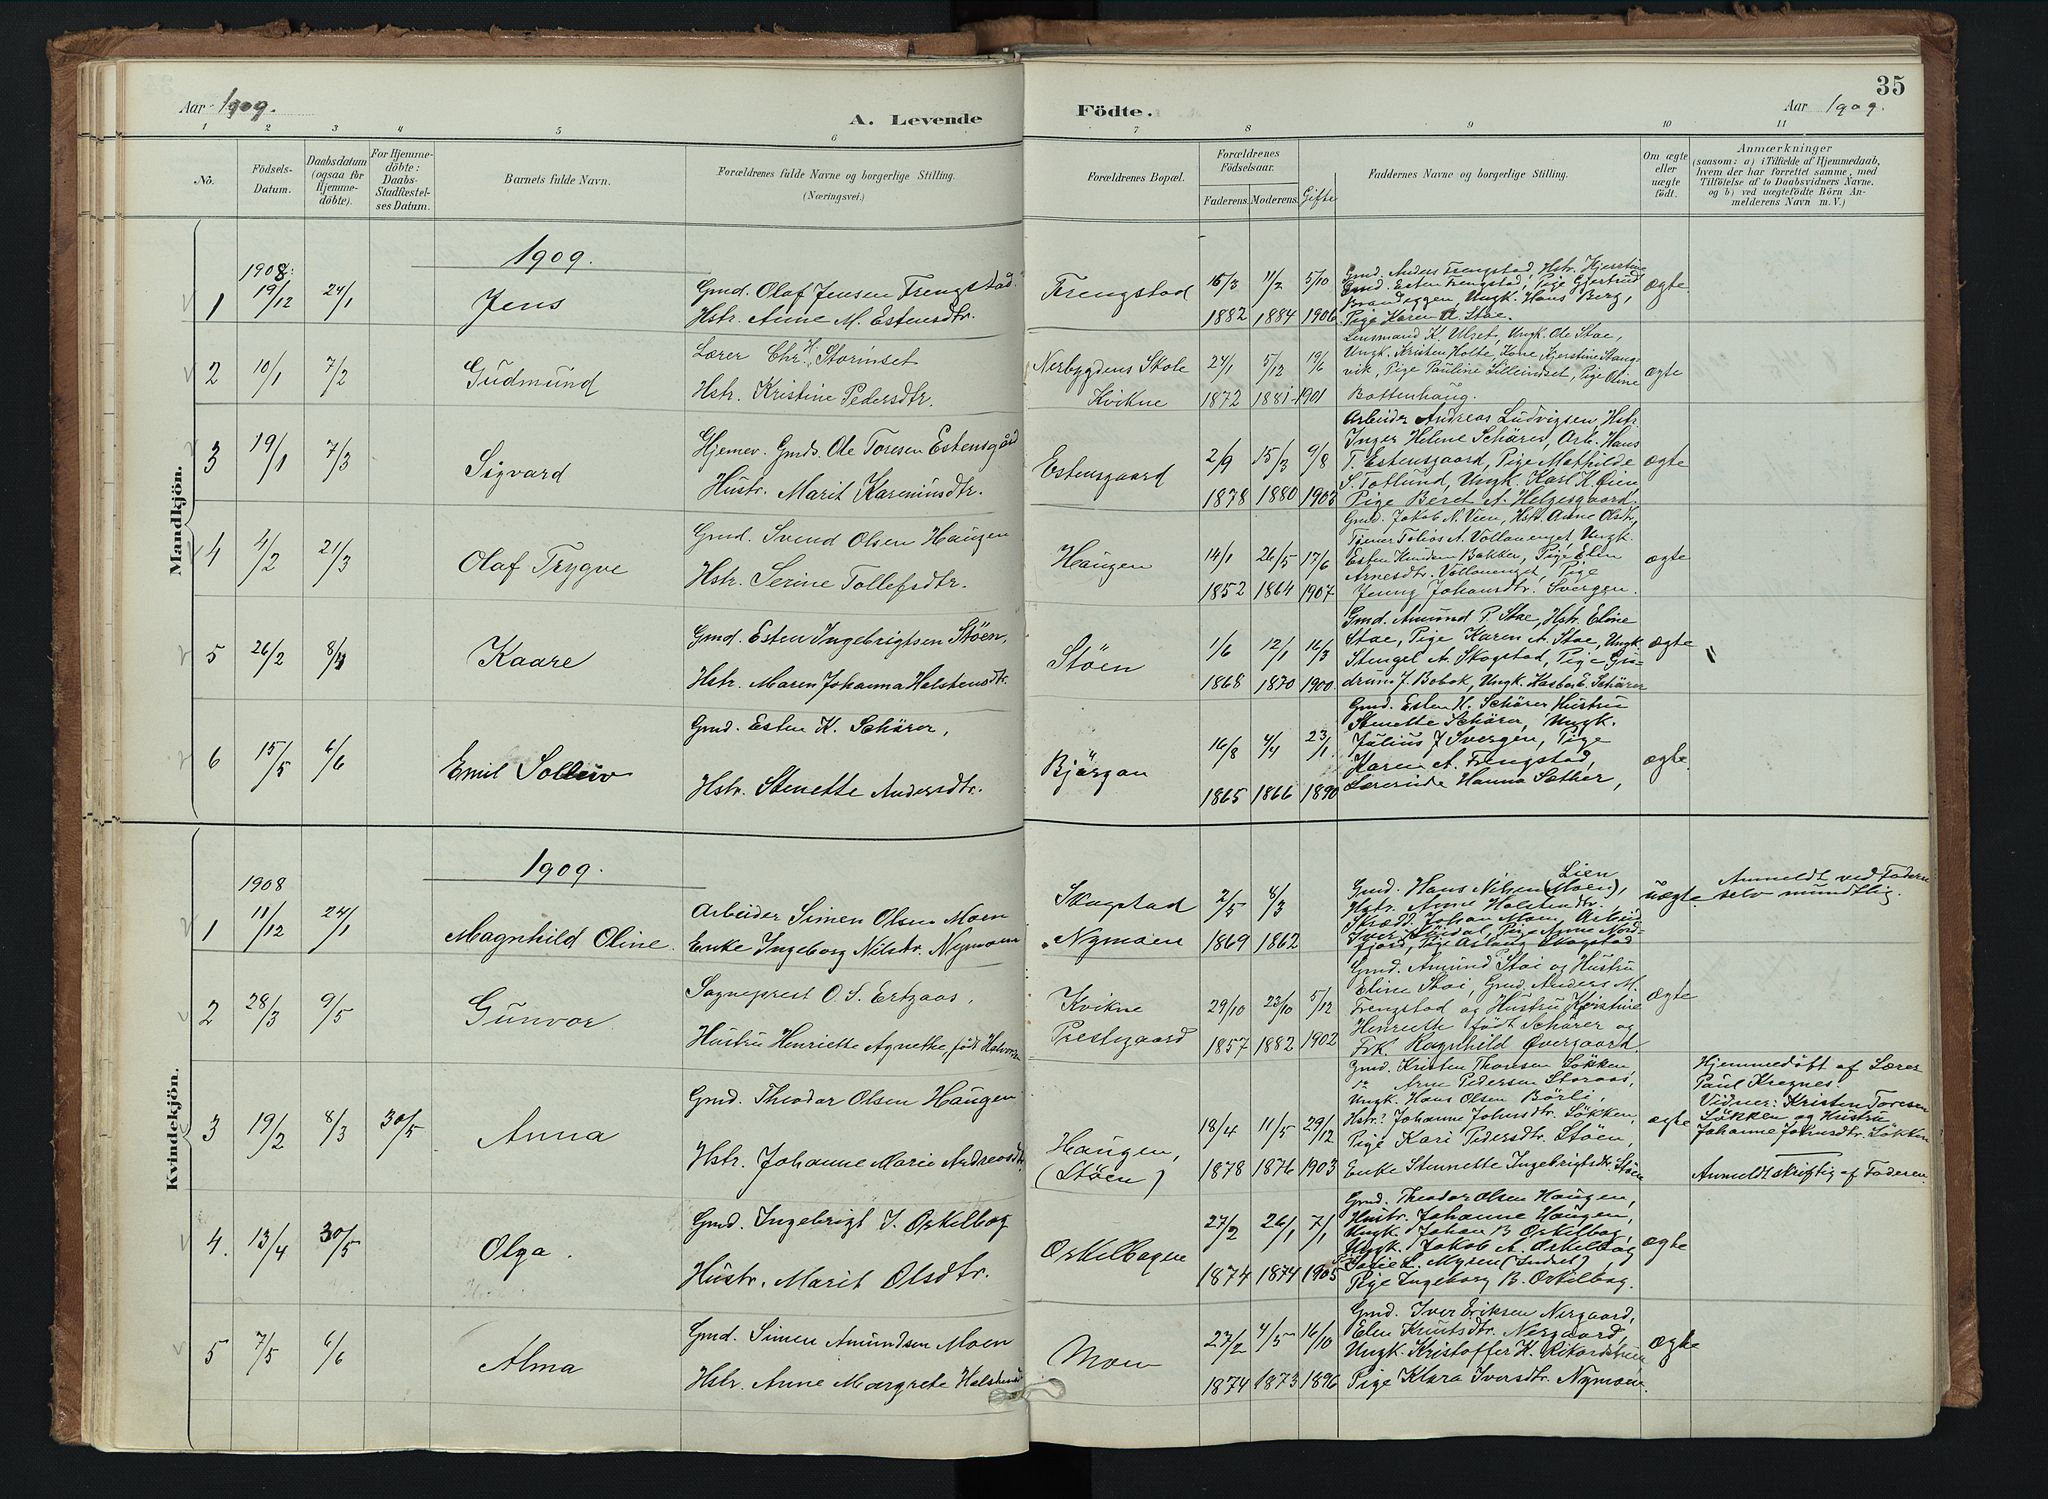 Aar 1909.
A. Levende
Födte.
Aar 1909.
35
1 2 3 4 5 6 7 8 9 10 11
No.
Födsels-
Datum.
Daabsdatum
(ogsaa för
Hjemme-
döbte).
For Hjemme-
döbte:
Daabs-
Stadfæstel-
ses Datum.
Barnets fulde Navn.
Forældrenes fulde Navne og borgerlige Stilling.
(Næringsvei.)
Forældrenes Bopæl.
Forældrenes
Födselsaar.
Faderens. Moderens. Gifte
Faddernes Navne og borgerlige Stilling.
Om ægte
eller
uægte
födt.
Anmærkninger
(saasom: a) i Tilfælde af Hjemmedaab,
hvem der har forrettet samme, med
Tilföielse af to Daabsvidners Navne,
og b) ved uægtefödte Börn An-
melderens Navn m. V.)
Mandkjön.
1909.
1908:
1 19/12 24/1 Jens
Gmd. Olaf Jensen Frengstad
Hstr. Anne M. Estensdtr.
Frengstad
15/3 11/2 5/10
1882 1884 1906
Gmd. Anders Frengstad, Hstr. Kjerstine
Gmd. Esten Frengstad, Pige Gjertrud
Brandeggen, Ungk. Hans Berg,
Pige Karen A. Stae.
ægte
2 10/1 7/2 Gudmund
Lærer Chr. H. Storinset
Hstr. Kristine Pedersdtr.
Nerbygdens Skole
Kvikne
24/1 5/12 19/6
1872 1881 1901
Lensmand K. Ulset, Ungk. Ole Stae,
Ungk. Kristen Holte, Kone Kjerstine Stang-
vik, Pige Pauline Lilleindset, Pige Oline
Bottenhaug.
ægte
3 19/1 7/3 Sigvard
Hjemev. Gmds. Ole Toresen Estensgård
Hustr. Marit Kareniusdtr.
Estensgaard
2/9 15/3 9/8
1878 1880 1903
Arbeider Andreas Ludvigsen, Hstr.
Inger Helene Schärer, Arb. Hans
T. Estensgaard, Pige Mathilde
S. Totlund, Ungk. Karl K. Öien,
Pige Beret A. Helgesgaard.
ægte
4 4/2 21/3 Olaf Trygve
Gmd. Svend Olsen Haugen
Hstr. Serine Tollefsdtr.
Haugen
14/1 26/5 17/6
1852 1864 1907
Gmd. Jakob N. Veen, Hstr. Anne Olsdtr,
Tjener Tobias A. Vollanenget, Ungk.
Esten Knudsen Bakken, Pige Elen
Arnesdtr. Vollanenget, Pige
Jenny Johansdtr. Svergen.
ægte
5 26/2 8/4 Kaare
Gmd. Esten Ingebrigtsen Stöen,
Hstr. Maren Johanna Halstensdtr.
Stöen
1/6 12/1 16/3
1868 1870 1900.
Gmd. Amund P. Stae, Hstr. Eline
Stae, Pige Karen A. Stae, Ungk.
Stengel A. Skogstad, Pige Gu-
drun J. Bobok, Ungk. Hasbo E. Schärer
ægte
6 15/5 6/6 Emil Solleiv
Gmd. Esten H. Schärer,
Hstr. Stenette Andersdtr.
Bjørgan
16/8 4/4 23/1
1865 1866 1890
Gmd. Esten H. Schärer Hustru
Stenette Schärer, Ungk.
Julius J Svergen, Pige
Karen A. Frengstad,
Lærerinde Hanna Sæther,
ægte.
Kvindekjön.
1909.
1908
1 11/12 24/1 Magnhild Oline.
Arbeider Simen Olsen Moen
Enke Ingeborg Nilsdtr. Nymoen
Skogstad
Nymoen
2/5 4/3
1869 1862
Lien
Gmd. Hans Nilsen (Moen),
Hstr. Anne Halstensdtr.,
Skrædd. Johan Moen, Arbeid.
Iver Löidal, Pige Anne Nord-
fjord, Pige Aslaug Skogstad
uægte.
Anmeldt ved Faderen
selv mundtlig.
2 28/3 9/5 Gunvor
Sogneprest O. S. Ertzaas,
Hustru Henriette Agnethe, født Halvorsen
Kvikne
Prestegaard
29/10 23/10 5/12
1857 1882 1902
Gmd. Amund Stai og Hustru
Eline Stai, Gmd. Anders M.
Frengstad og Hustru Kjerstine
Henriette født Schärer og
Frk. Ragnhild Overgaard.
ægte
3 19/2 8/3 30/5 Anna
Gmd. Theodor Olsen Haugen
Hstr. Johanne Marie Andreasdtr.
Haugen,
(Stöen)
18/4 11/5 29/12
1878 1876 1903
Gmd. Kristen Thoresen Lökken,
do Arne Pedersen Storaas,
Ungk. Hans Olsen Börli,
Hstr: Johanne Johnsdtr. Lökken,
Pige Kari Pedersdtr. Stöen,
Enke Stennette Ingebrigtsdtr. Stöen
ægte
Hjemmedøbt af Lærer
Paul Kregnes.
Vidner: Kristen Toresen
Lökken og Hustru
Johanne Johnsdtr. Lökken
Anmeldt skriftlig af Faderen.
4. 13/4 30/5 Olga.
Gmd. Ingebrigt J. Orkilbog
Hustr. Marit Olsdtr.
Orkilbogen
27/2 26/1 7/1
1874 1874 1905
Gmd. Theodor Olsen Haugen,
Hustr. Johanne Haugen,
Ungk. Johan B Orkilbog,
Ungk. Jakob A. Orkelbog
L. Myren (Indset),
Pige Ingeborg B. Orkilbog.
ægte
5 7/5 6/6 Alma
Gmd. Simen Amundsen Moen
Hstr. Anne Margrete Halstensd
Moen
27/2 4/5 16/10
1874 1873 1896
Gmd. Iver Eriksen Nergaard,
Elen Knutsdtr. Nergaard,
Ungk. Kristoffer K. Rikardstuen
Pige Klara Iversdtr. Nymoen.
ægte